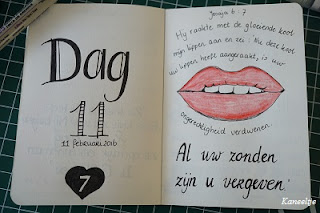 Dag
11
11 februari 2016
7
Jesaja 6 : 7
Hij raakte met de gloeiende kool
mijn lippen aan en zei: "Nu deze kool
uw lippen heeft aangeraakt, is uw
ongerechtigheid verdwenen.
Al uw zonden
zijn u vergeven"
Kaneeltje